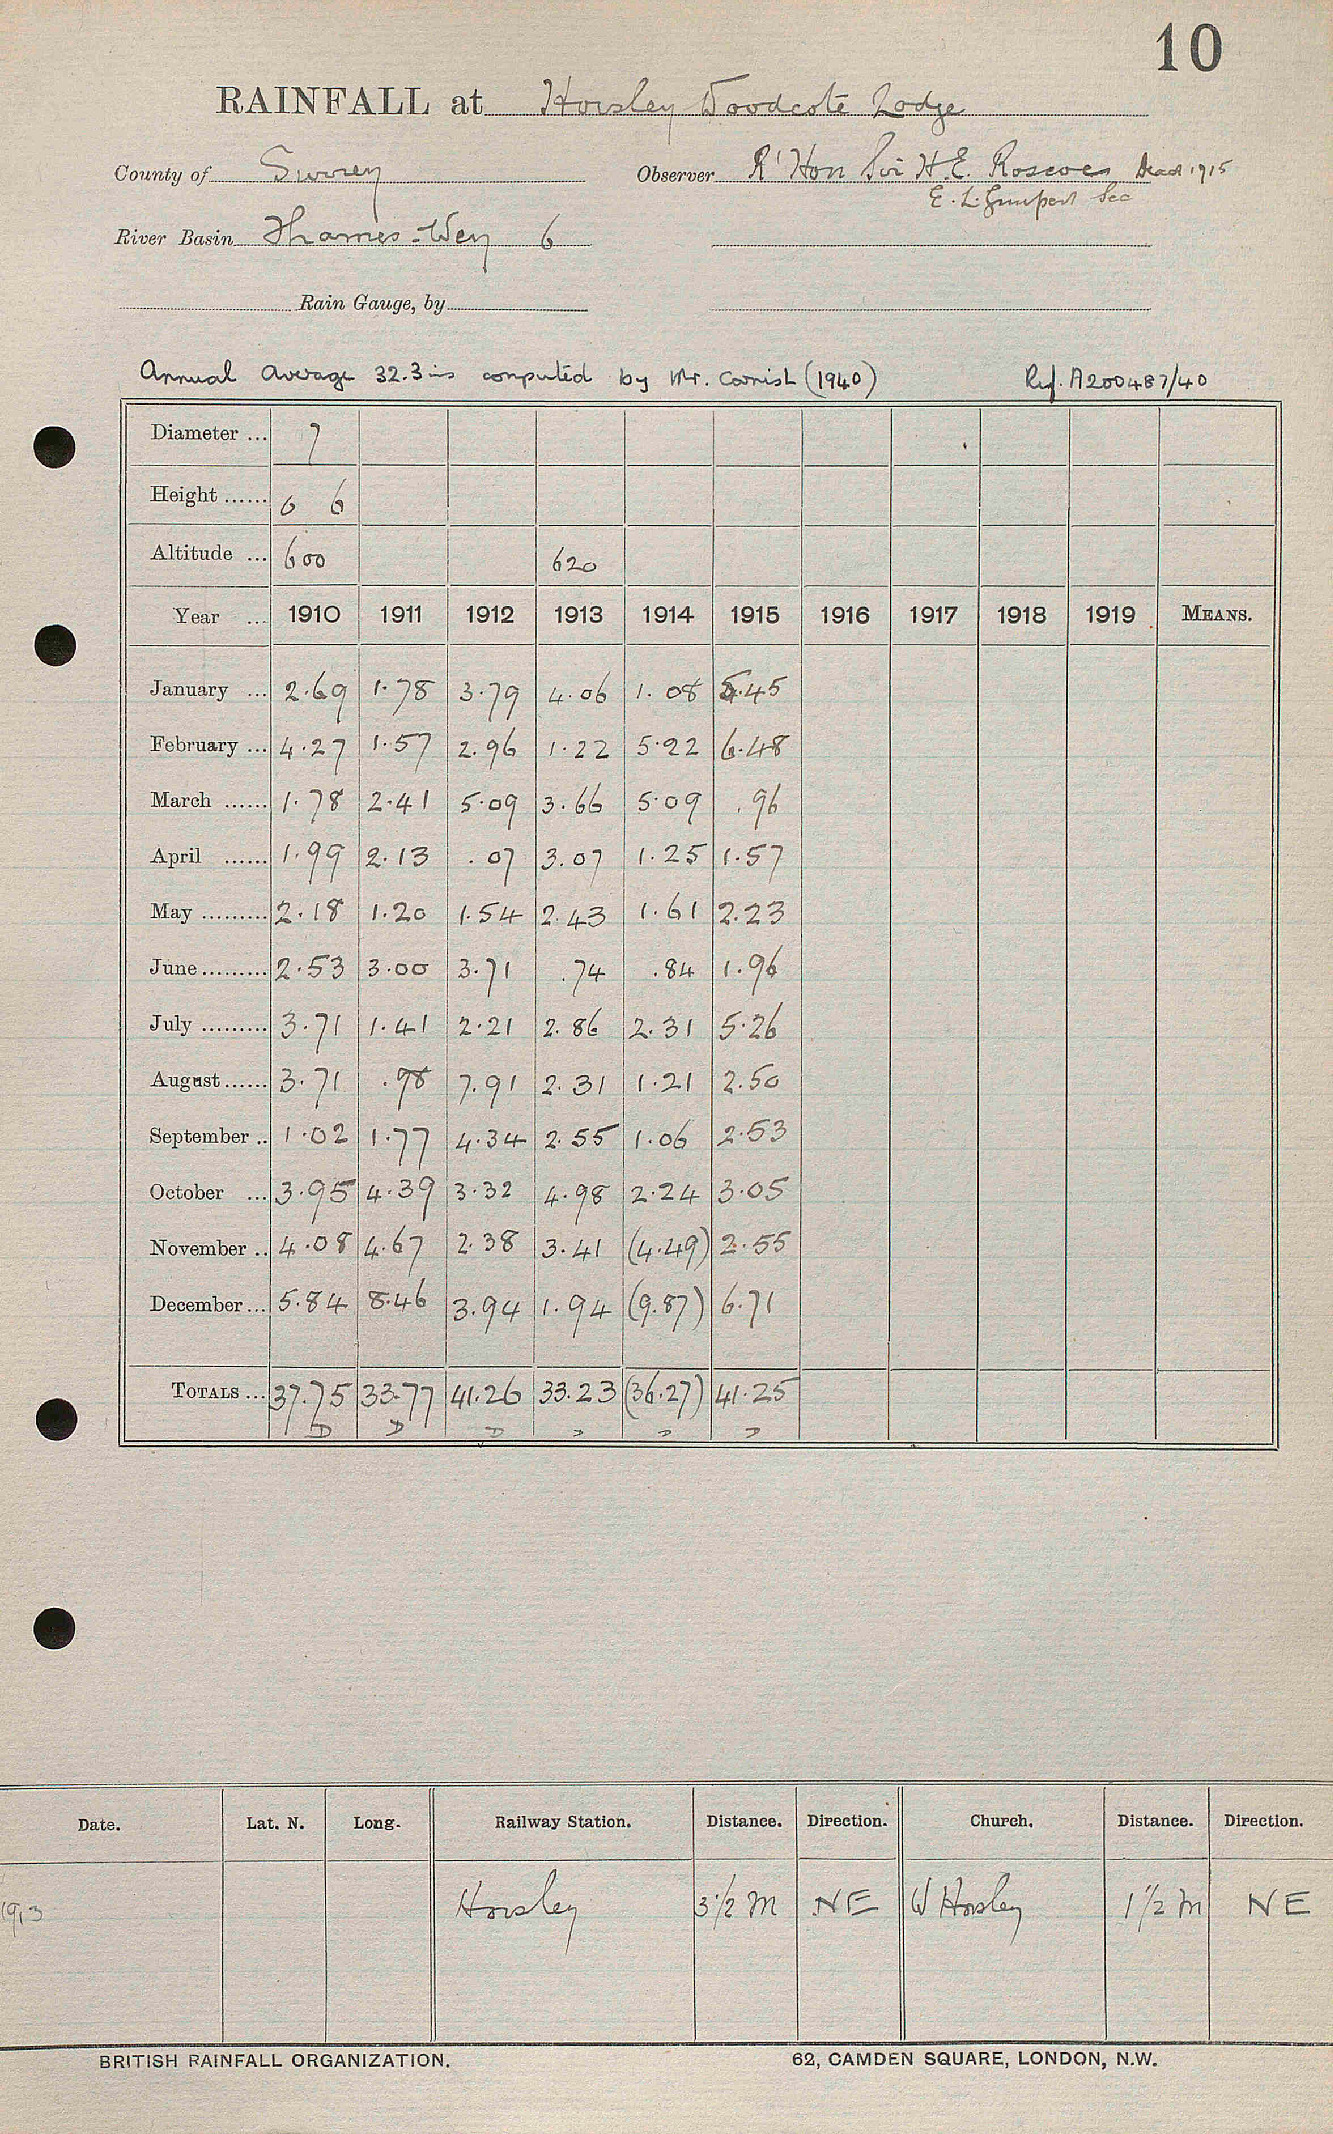 10
RAINFALL at Horsley Woodcote Lodge
County of Surrey Observer Rt Hon Sir H.E. Roscoe Dead 1915
E. L. Sec
River Basin Thames-Wey 6
Rain Gauge, by
Annual Average 32.3 ins computed by Mr. Cornish (1940) Ref. A200487/40
Diameter ... 7
Height ...... 0 6
Altitude ... 600 620
Year ... 1910 1911 1912 1913 1914 1915 1916 1917 1918 1919 MEANS.
January ... 2.69 1.78 3.79 4.06 1.08 5.45
February ... 4.27 1.57 2.96 1.22 5.22 6.48
March ...... 1.78 2.41 5.09 3.66 5.09 .96
April ...... 1.99 2.13 .07 3.07 1.25 1.57
May ......... 2.18 1.20 1.54 2.43 1.61 2.23
June ......... 2.53 3.00 3.71 .74 .84 1.96
July ......... 3.71 1.41 2.21 2.86 2.31 5.26
August ...... 3.71 .98 7.91 2.31 1.21 2.50
September .. 1.02 1.77 4.34 2.55 1.06 2.53
October ... 3.95 4.39 3.32 4.98 2.24 3.05
November .. 4.08 4.67 2.38 3.41 (4.49) 2.55
December ... 5.84 8.46 3.94 1.94 (9.87) 6.71
TOTALS ... 37.75 33.77 41.26 33.23 (36.27) 41.25
D D D D D D
Date. Lat. N. Long. Railway Station. Distance. Direction. Church. Distance. Direction.
1913 Horsley 3½ m NE W Horsley 1½ m NE
BRITISH RAINFALL ORGANIZATION. 62, CAMDEN SQUARE, LONDON, N.W.